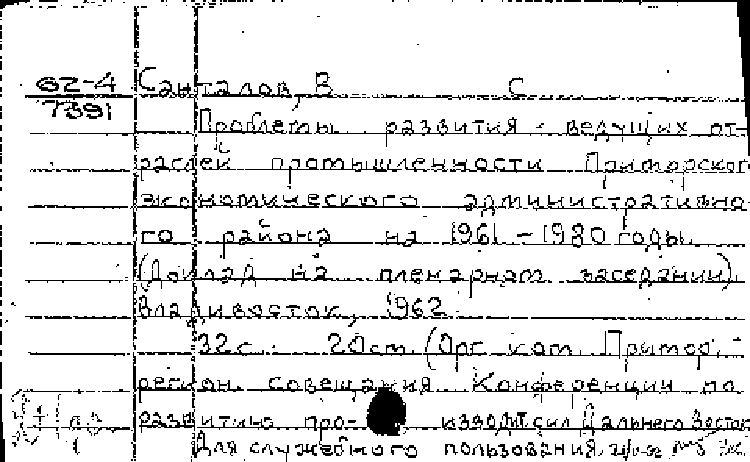 62-4 Санталов, В С
7391
Проблемы развития ведущих от-
раслей промышленности Приморског
экономического административно
го района на 1961-1980 годы.
(Доклад на пленарном заседании).
Владивосток, 1962.
32с. 20см. (Орг. ком. Примор.
регион. совещания Конференции по
развитию про- извод. сил Дальнего Восток
Для служебного пользования.